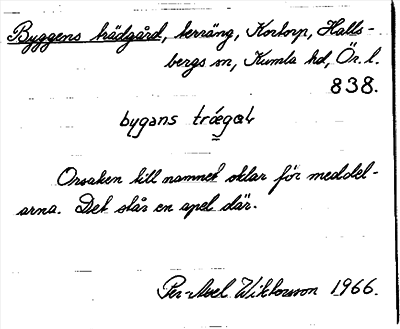 Byggens trädgård, terräng, Kortorp, Halls-
bergs sn, Kumla hd, Ör. l.
838.
bygǝns trǽgaɖ
Orsaken till namnet oklar för meddel-
arna. Det står en apel där.
Per-Axel Wiktorsson 1966.